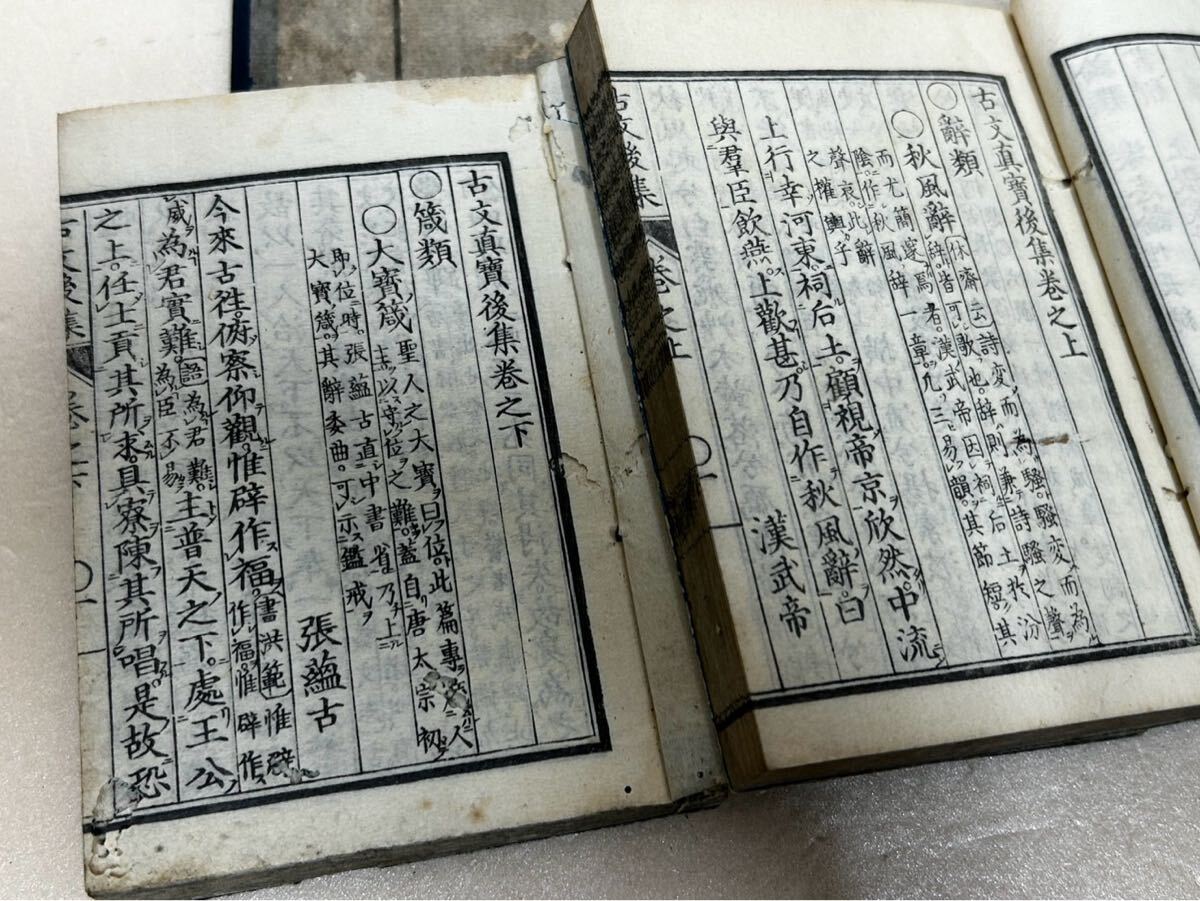 古文真寶後集卷之上
辭類
秋風辭
休齋云詩變而為騷騷變而為
辭皆可歌也辞則兼詩騷之聲
而尤簡邃焉者漢武帝因祠后土於汾
陰作秋風辞一章凡三易韻其節短其
聲哀此辭
之權輿乎
漢武帝
上行幸河東祠后土顧視帝京欣然中流
與羣臣飲燕上歡甚乃自作秋風辭曰
古文後集
卷之上
古文真寶後集卷之下
箴類
大寶箴
聖人之大寶曰位此篇專
主以守位之難蓋自唐太宗初
即位時張蘊古直中書省乃上
大寶箴其辭委曲可示鑑戒
張蘊古
今來古往俯察仰觀惟辟作福
書洪範惟辟
作福惟辟作
威為君實難
語為君難
為臣不易
主普天之下處王公
之上任土貢其所求具寮陳其所唱是故恐
古文後集